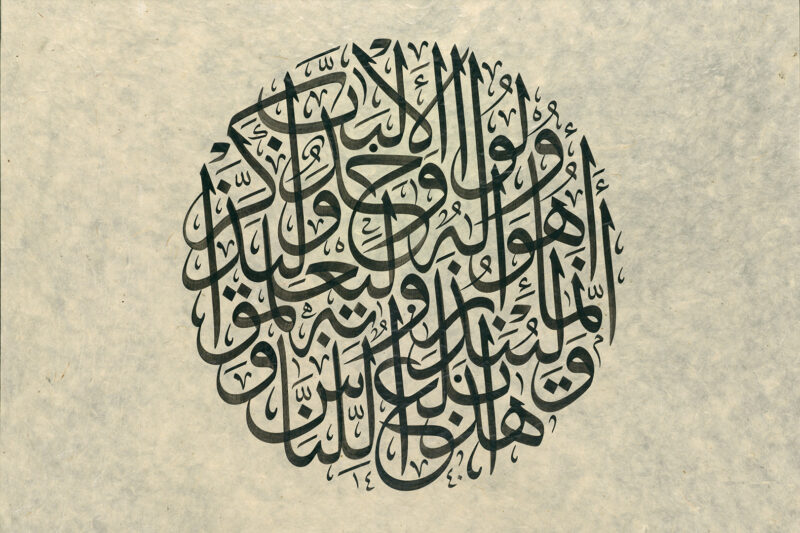 هَٰذَا بَلَٰغٌ لِّلنَّاسِ
وَلِيُنذَرُوا بِهِ وَلِيَعْلَمُوا
أَنَّمَا هُوَ إِلَٰهٌ وَٰحِدٌ
وَلِيَذَّكَّرَ أُولُوا الْأَلْبَٰبِ
١٤ ٤٠